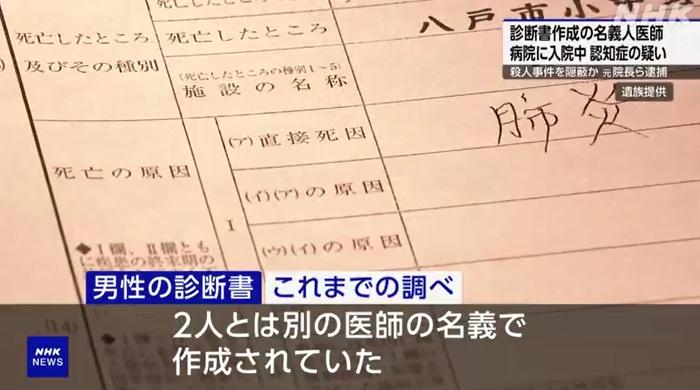 NHK
診断書作成の名義人医師
病院に入院中 認知症の疑い
殺人事件を隠蔽か 元院長ら逮捕
遺族提供
死亡したところ
八戸市小中野
死亡したところ
及びその種別
(死亡したところの種別1~5)
施設の名称
死亡の原因
Ⅰ
(ア)直接死因
肺炎
(イ)(ア)の原因
(ウ)(イ)の原因
◆Ⅰ欄、Ⅱ欄ともに疾患の終末期の
(14)
男性の診断書
これまでの調べ
2人とは別の医師の名義で
作成されていた
NHK
NEWS